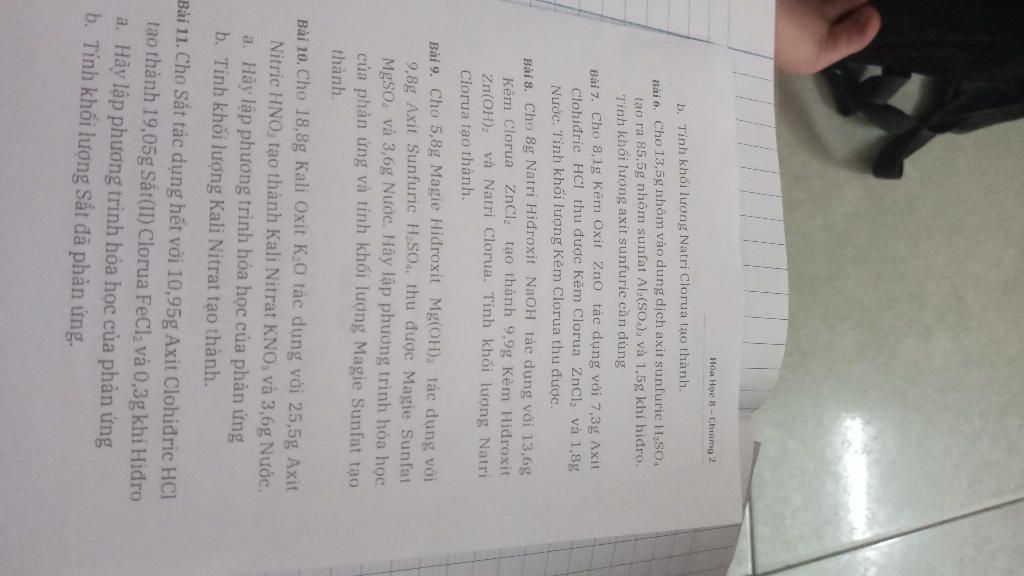 Hóa Học 8 – Chương 2
b. Tính khối lượng Natri Clorua tạo thành.
Bài 6. Cho 13,5g nhôm vào dung dịch axit sunfuric H₂SO₄
tạo ra 85,5g nhôm sunfat Al₂(SO₄)₃ và 1,5g khí hiđro.
Tính khối lượng axit sunfuric cần dùng
Bài 7. Cho 8,1g Kẽm Oxit ZnO tác dụng với 7,3g Axit
Clohiđric HCl thu được Kẽm Clorua ZnCl₂ và 1,8g
Nước. Tính khối lượng Kẽm Clorua thu được.
Bài 8. Cho 8g Natri Hiđroxit NaOH tác dụng với 13,6g
Kẽm Clorua ZnCl₂ tạo thành 9,9g Kẽm Hiđroxit
Zn(OH)₂ và Natri Clorua. Tính khối lượng Natri
Clorua tạo thành.
Bài 9. Cho 5,8g Magie Hiđroxit Mg(OH)₂ tác dụng với
9,8g Axit Sunfuric H₂SO₄, thu được Magie Sunfat
MgSO₄ và 3,6g Nước. Hãy lập phương trình hóa học
của phản ứng và tính khối lượng Magie Sunfat tạo
thành.
Bài 10. Cho 18,8g Kali Oxit K₂O tác dụng với 25,5g Axit
Nitric HNO₃ tạo thành Kali Nitrat KNO₃ và 3,6g Nước.
a. Hãy lập phương trình hóa học của phản ứng
b. Tính khối lượng Kali Nitrat tạo thành.
Bài 11. Cho Sắt tác dụng hết với 10,95g Axit Clohiđric HCl
tạo thành 19,05g Sắt(II) Clorua FeCl₂ và 0,3g khí Hiđro
a. Hãy lập phương trình hóa học của phản ứng
b. Tính khối lượng Sắt đã phản ứng.